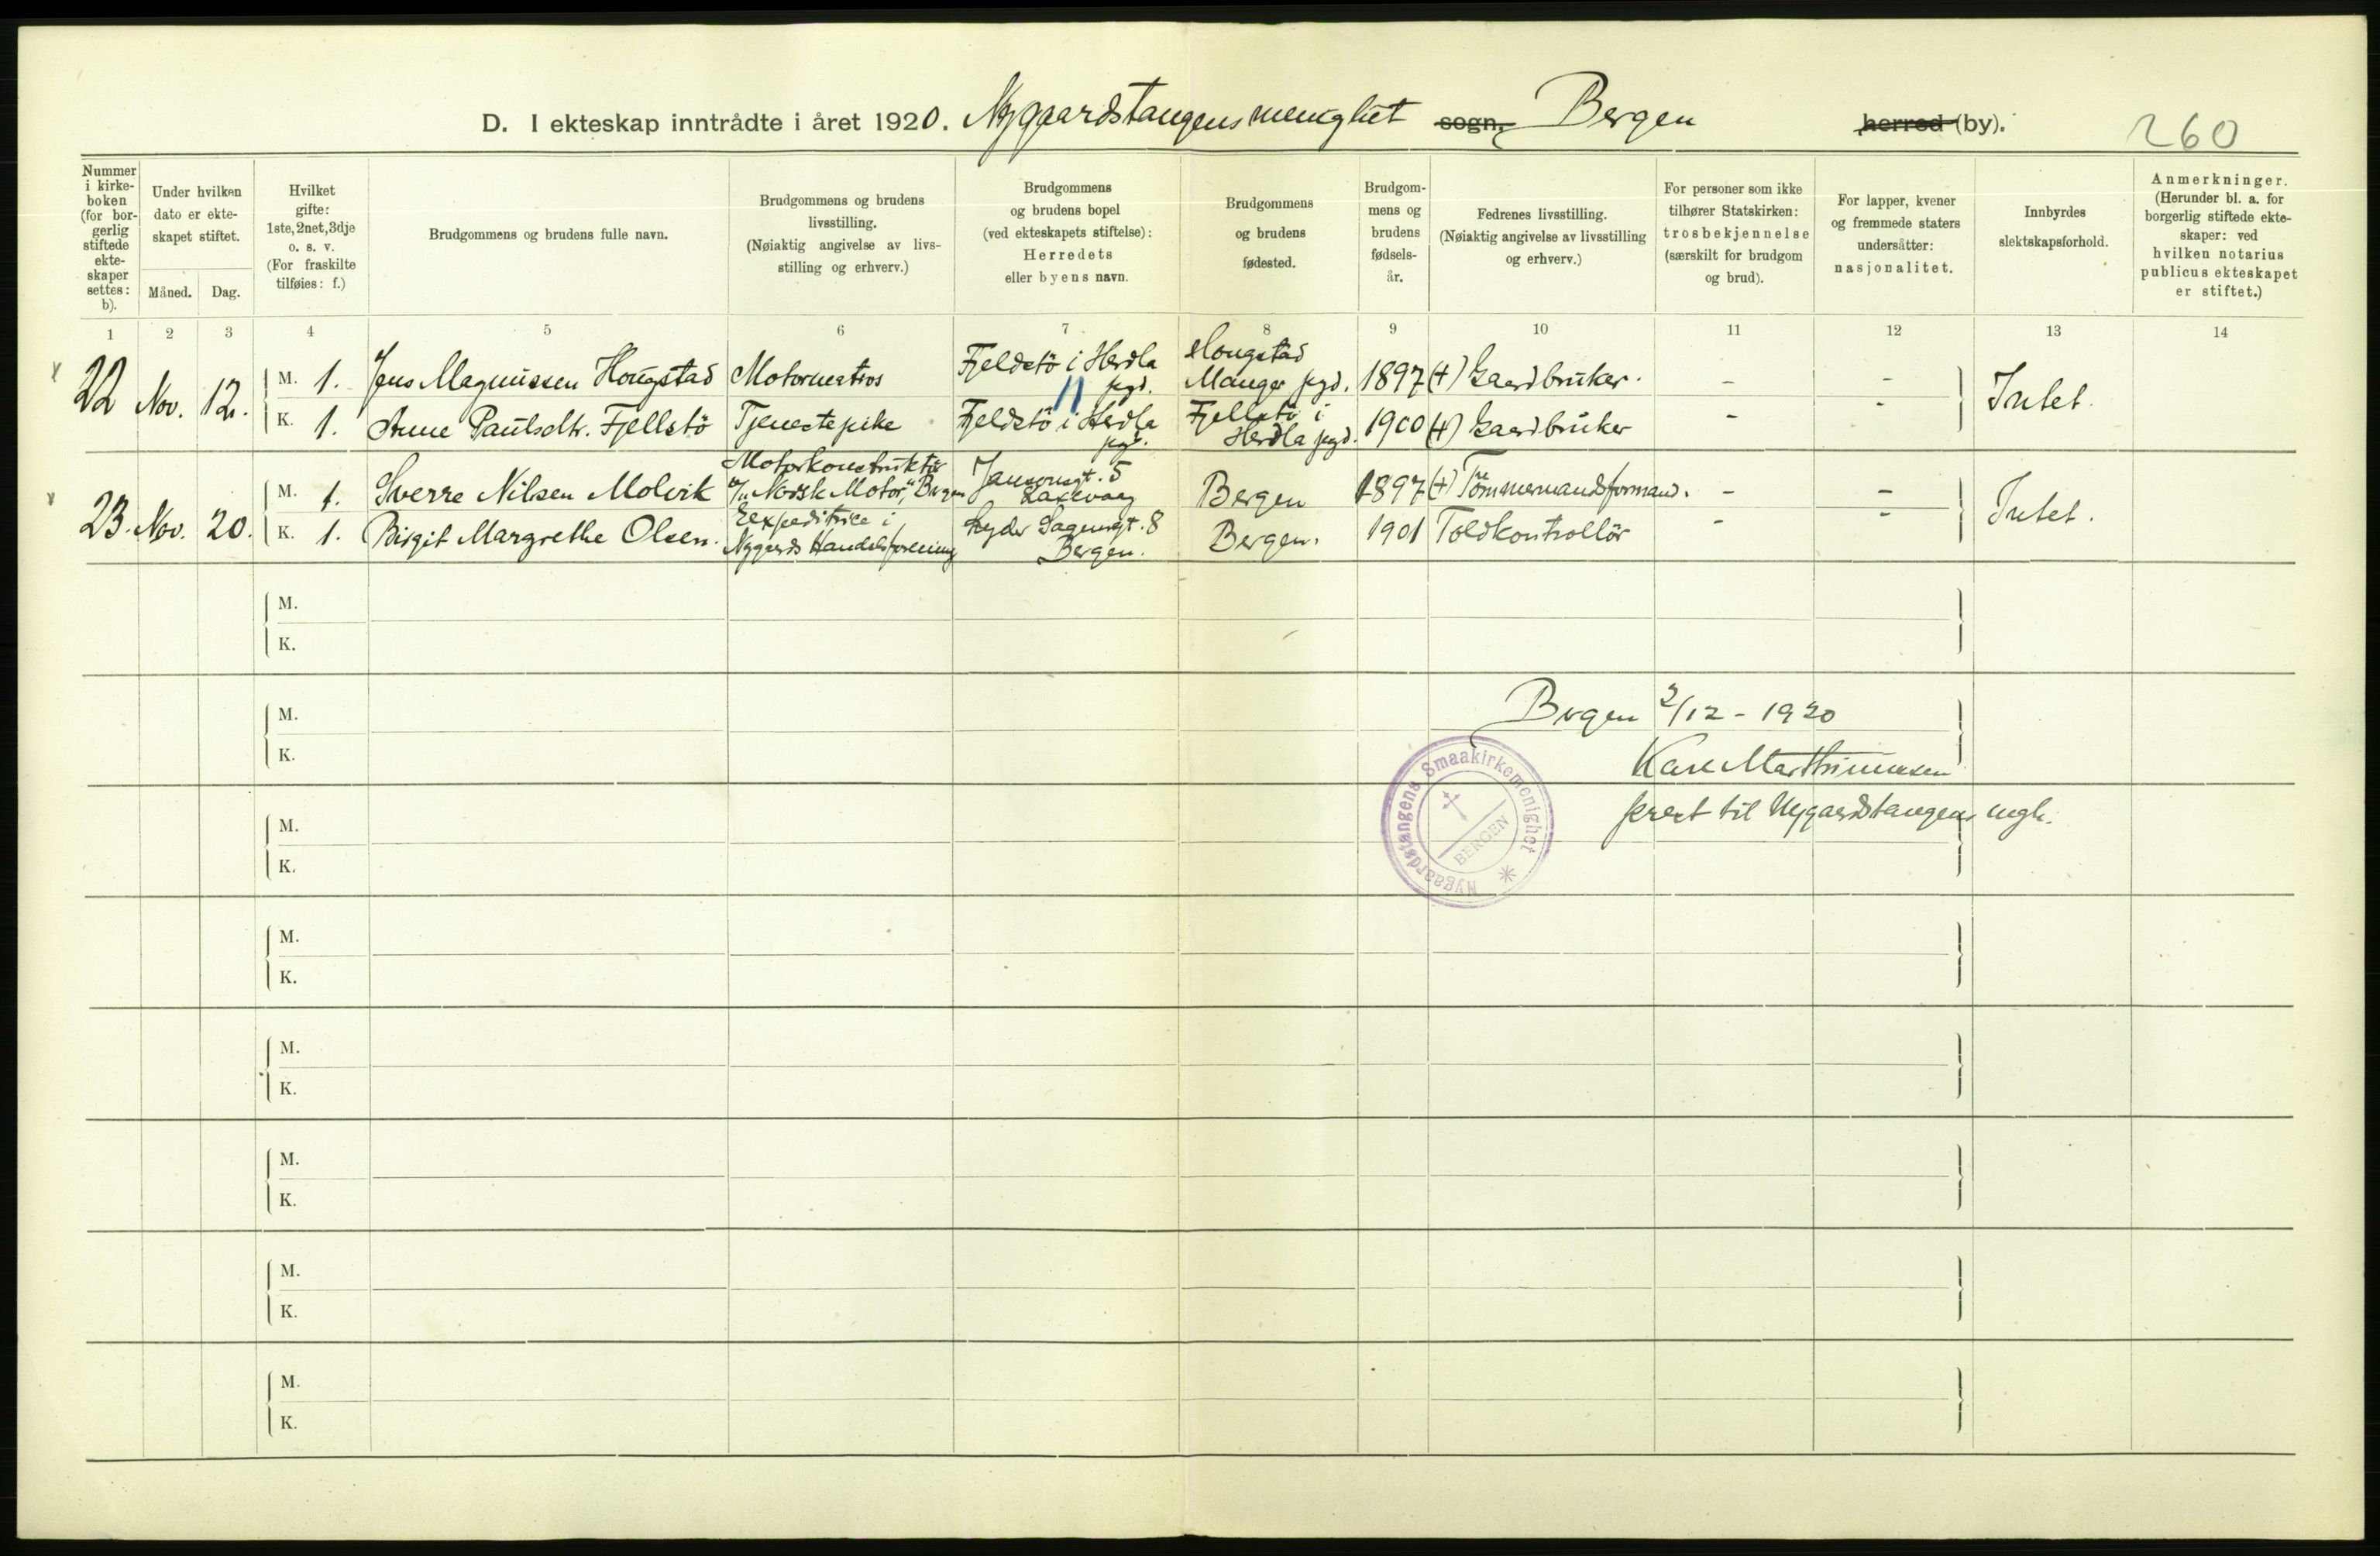 D. I ekteskap inntrådte i året 1920. Nygaardstangens menighet sogn, Bergen herred (by). 260
Nummer i kirke-boken (for bor-gerlig stiftede ekte-skaper settes: b).
Under hvilken dato er ekte-skapet stiftet.
Måned. Dag.
Hvilket gifte: 1ste, 2net, 3dje o. s. v. (For fraskilte tilføies: f.)
Brudgommens og brudens fulle navn.
Brudgommens og brudens livsstilling. (Nøiaktig angivelse av livs-stilling og erhverv.)
Brudgommens og brudens bopel (ved ekteskapets stiftelse): Herredets eller byens navn.
Brudgommens og brudens fødested.
Brudgom-mens og brudens fødsels-år.
Fedrenes livsstilling. (Nøiaktig angivelse av livsstilling og erhverv.)
For personer som ikke tilhører Statskirken: trosbekjennelse (særskilt for brudgom og brud).
For lapper, kvener og fremmede staters undersåtter: nasjonalitet.
Innbyrdes slektskapsforhold.
Anmerkninger. (Herunder bl. a. for borgerlig stiftede ekte-skaper: ved hvilken notarius publicus ekteskapet er stiftet.)
1 2 3 4 5 6 7 8 9 10 11 12 13 14
22 Nov. 12. M. 1. Jens Magnussen Hougstad Motormatros Fjeldstö i Herdla pgd. Hougstad Manger pgd. 1897 (+) Gaardbruker. - - Intet.
K. 1. Anne Paulsdtr. Fjellstö Tjenestepike Fjeldstö i Herdla pgd. Fjellstö i Herdla pgd. 1900 (+) Gaardbruker - -
23. Nov. 20. M. 1. Sverre Nilsen Molvik Motorkonstruktör "Norsk Motor," Bergen Jansonsgt. 5 Laxevaag Bergen 1897 (+) Tömmermandsformand. - - Intet.
K. 1. Birgit Margrethe Olsen. Expeditrice i Nygaards Handelsforening Lyder Sagensgt. 8 Bergen. Bergen. 1901 Toldkontrollör - -
M.
K.
M.
K.
Bergen 2/12 - 1920
Karl Marthinussen
prest til Nygaardstangens mgh.
Nygaardstangens Smaakirkemenighet
BERGEN
M.
K.
M.
K.
M.
K.
M.
K.
M.
K.
M.
K.